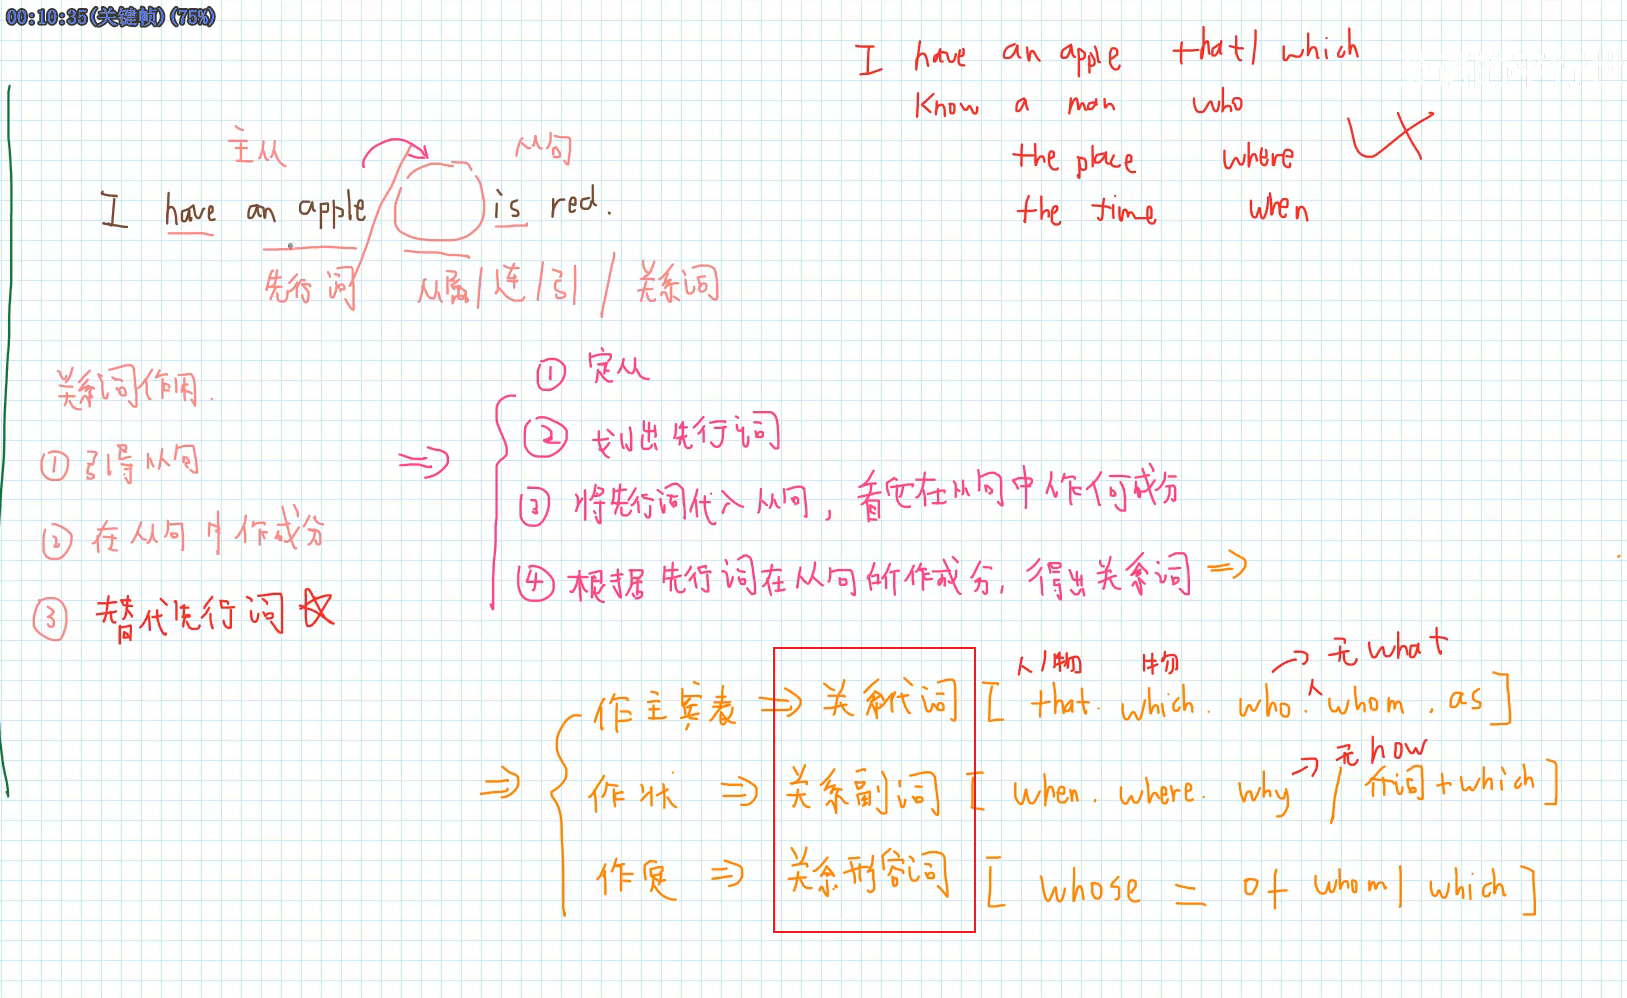 00:10:35(关键帧)(75%)
I have an apple that/ which
know a man who
the place where
the time when
主从 从句
I have an apple is red.
先行词 从属/连/引/关系词
关系词作用.
① 引导从句
② 在从句中作成分
③ 替代先行词
① 定从
② 划出先行词
③ 将先行词代入从句，看它在从句中作何成分
④ 根据先行词在从句所作成分，得出关系词 ⇒
人/物 物 人 → 无what
⇒ 作主宾表 ⇒ 关系代词 [ that. which. who. whom. as ]
→ 无how
作状 ⇒ 关系副词 [ when. where. why / 介词+which ]
作定 ⇒ 关系形容词 [ whose = of whom| which ]